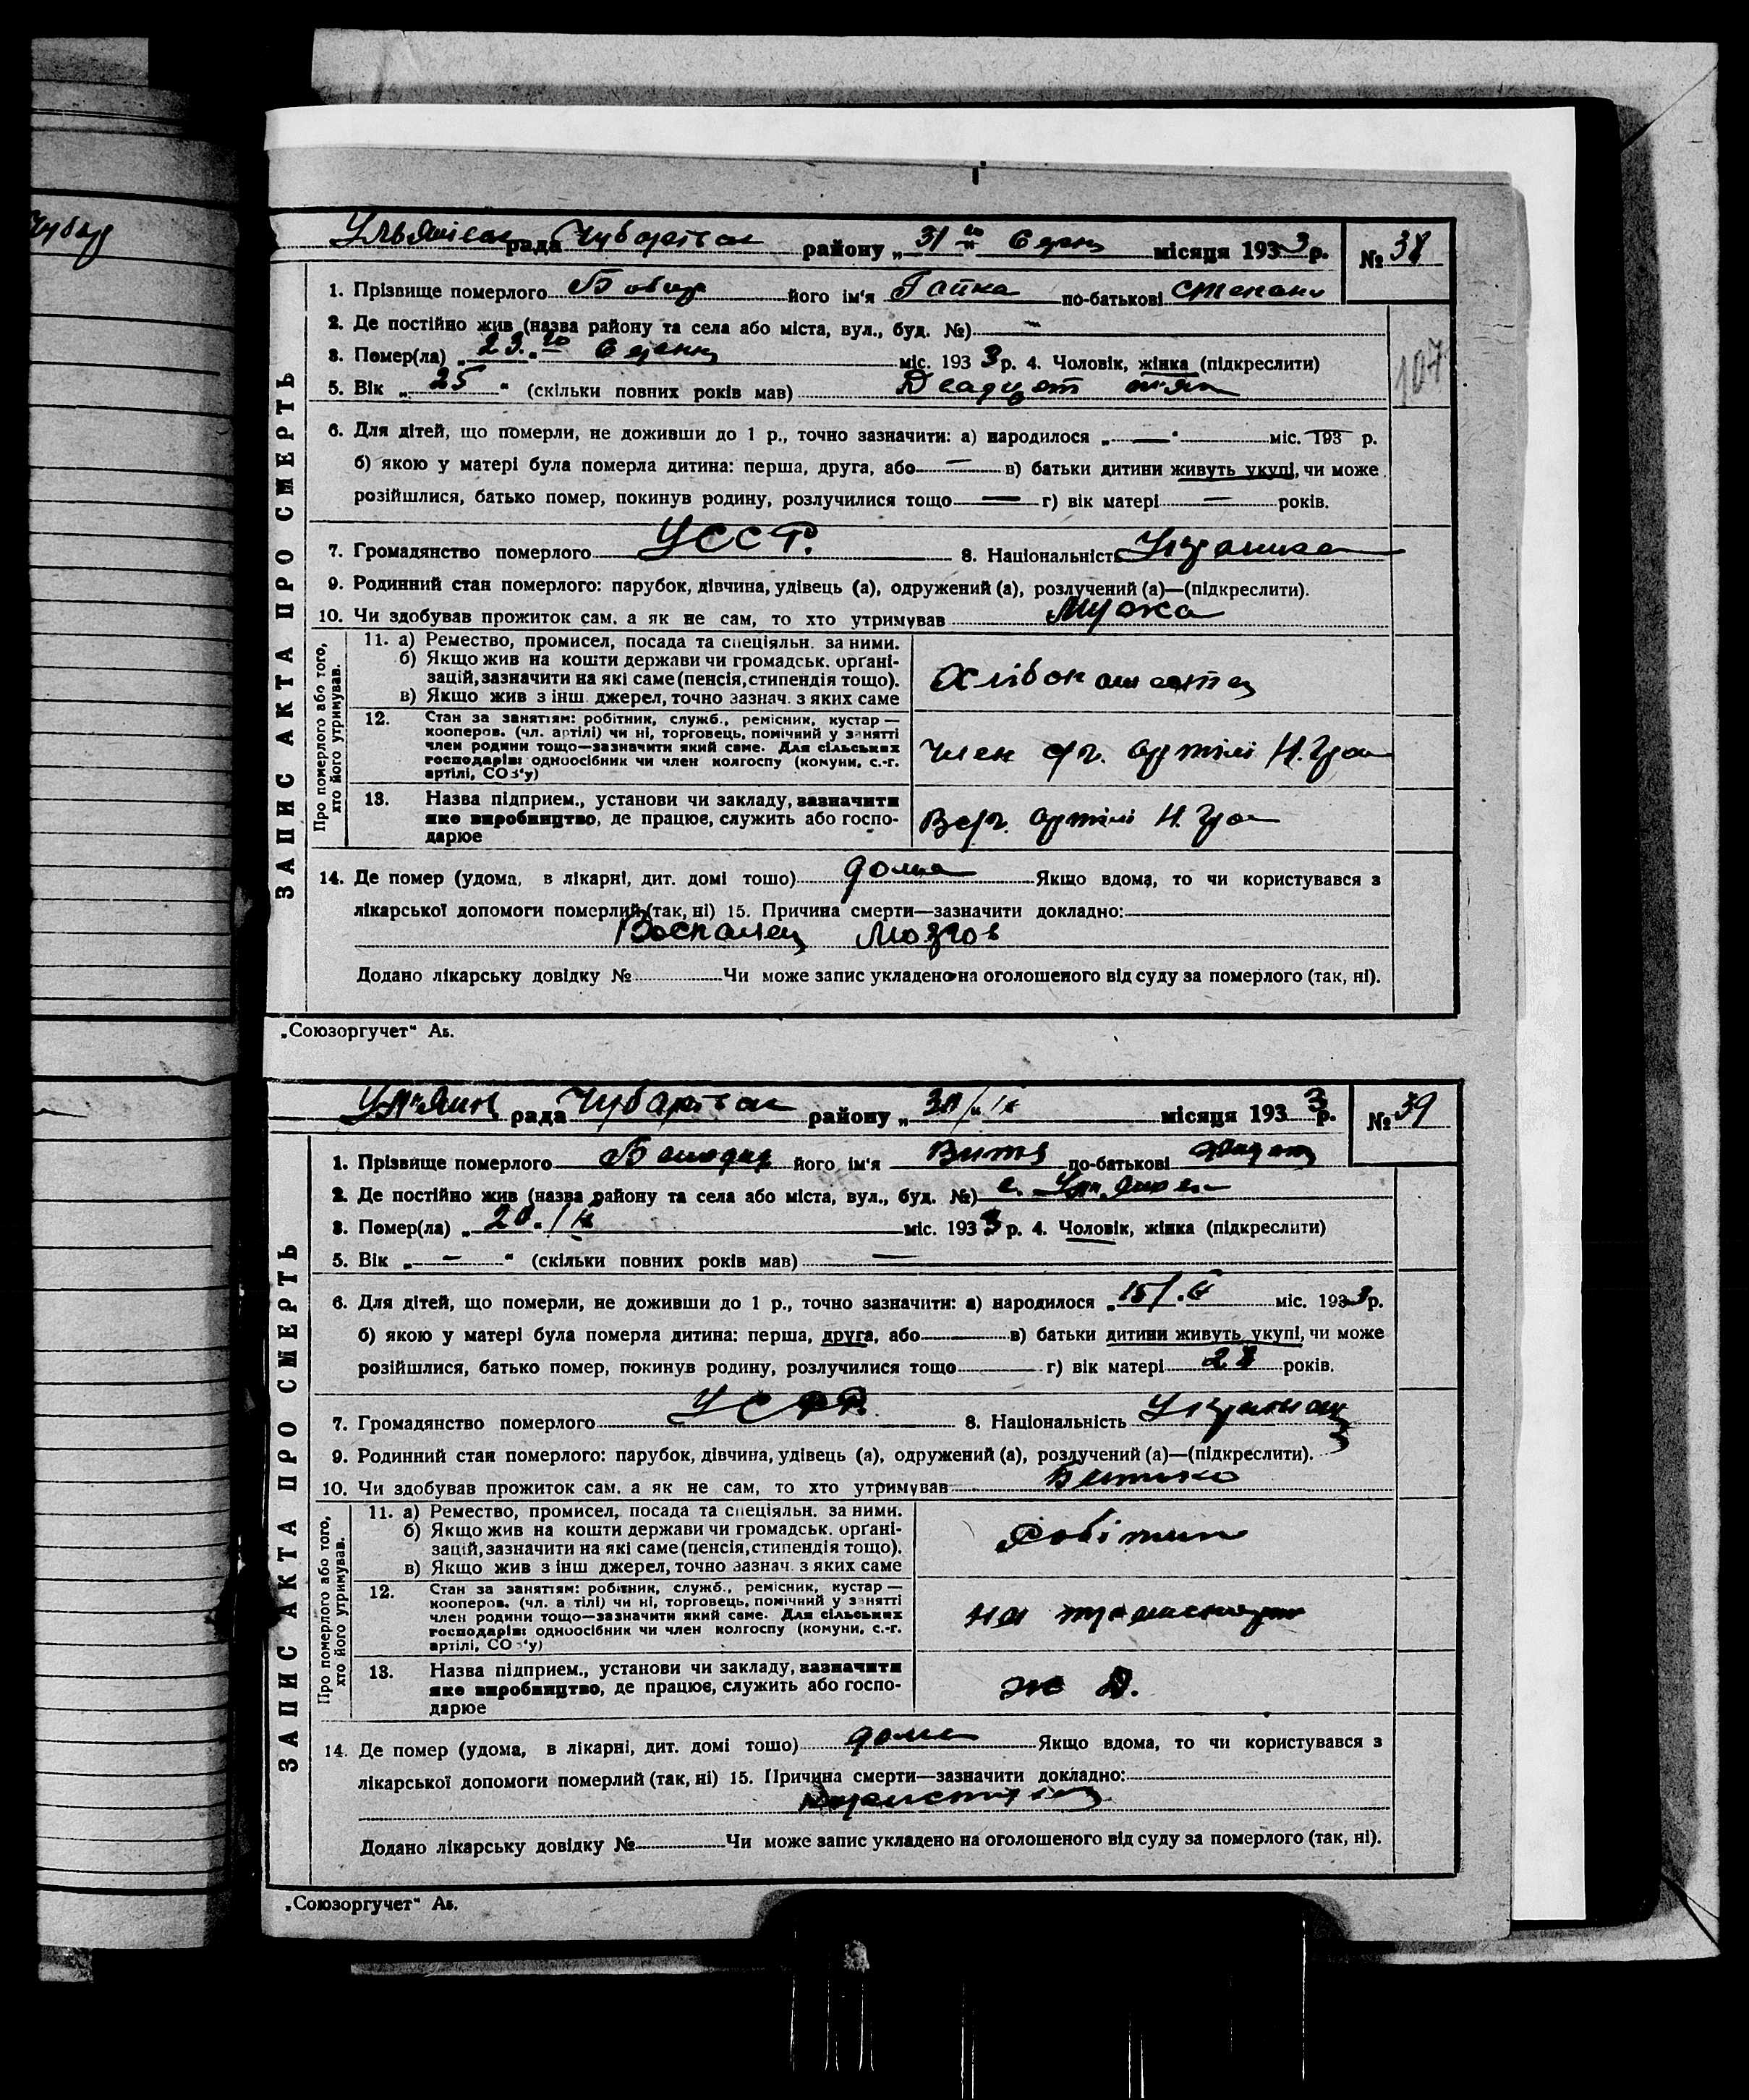 Чубар
Ульянівська рада Чубарівськ району „31го" Серпн місяця 1933 р. № 38
ЗАПИС АКТА ПРО СМЕРТЬ
1. Прізвище померлого його ім'я Гапка по-батькові Степанів
2. Де постійно жив (назва району та села або міста, вул., буд. №) —
3. Помер(ла) „23.го Серпня міс. 1933 р. 4. Чоловік, жінка (підкреслити)
5. Вік „25" (скільки повних років мав) Двадцет пять
107
6. Для дітей, що померли, не доживши до 1 р., точно зазначити: а) народилося „—" міс. 193 р.
б) якою у матері була померла дитина: перша, друга, або — в) батьки дитини живуть укупі, чи може
розійшлися, батько помер, покинув родину, розлучилися тощо — г) вік матері — років.
7. Громадянство померлого УССР. 8. Національність Українка
9. Родинний стан померлого: парубок, дівчина, удівець (а), одружений (а), розлучений (а)—(підкреслити).
10. Чи здобував прожиток сам, а як не сам, то хто утримував Мужа
Про померлого або того, хто його утримував.
11. а) Ремество, промисел, посада та спеціяльн. за ними.
б) Якщо жив на кошти держави чи громадськ. органі-
зацій, зазначити на які саме (пенсія, стипендія тощо).
в) Якщо жив з інш. джерел, точно зазнач. з яких саме
Хлібопашество
12. Стан за заняттям: робітник, служб., ремісник, кустар —
кооперов. (чл. артілі) чи ні, торговець, помічний у занятті
член родини тощо—зазначити який саме. Для сільських
господарів: одноосібник чи член колгоспу (комуни, с.-г.
артілі, СОЗ'у)
Член артілі
13. Назва підприєм., установи чи закладу, зазначити
яке виробництво, де працює, служить або госпо-
дарює
артілі
14. Де помер (удома, в лікарні, дит. домі тошо) дома Якщо вдома, то чи користувався з
лікарської допомоги померлий (так, ні) 15. Причина смерти—зазначити докладно:
Воспалец Мозгов
Додано лікарську довідку № Чи може запис укладено на оголошеного від суду за померлого (так, ні).
„Союзоргучет" Аб.
Ульян рада Чубарівськ району місяця 1933 р. № 39
ЗАПИС АКТА ПРО СМЕРТЬ
1. Прізвище померлого його ім'я Витя по-батькові
2. Де постійно жив (назва району та села або міста, вул., буд. №) с.
3. Помер(ла) „20. міс. 1933 р. 4. Чоловік, жінка (підкреслити)
5. Вік „—" (скільки повних років мав) —
6. Для дітей, що померли, не доживши до 1 р., точно зазначити: а) народилося „15/ міс. 1933 р.
б) якою у матері була померла дитина: перша, друга, або — в) батьки дитини живуть укупі, чи може
розійшлися, батько помер, покинув родину, розлучилися тощо г) вік матері 28 років.
7. Громадянство померлого 8. Національність Українец
9. Родинний стан померлого: парубок, дівчина, удівець (а), одружений (а), розлучений (а)—(підкреслити).
10. Чи здобував прожиток сам, а як не сам, то хто утримував Батько
Про померлого або того, хто його утримував.
11. а) Ремество, промисел, посада та спеціяльн. за ними.
б) Якщо жив на кошти держави чи громадськ. органі-
зацій, зазначити на які саме (пенсія, стипендія тощо).
в) Якщо жив з інш. джерел, точно зазнач. з яких саме
Робітник
12. Стан за заняттям: робітник, служб., ремісник, кустар —
кооперов. (чл. артілі) чи ні, торговець, помічний у занятті
член родини тощо—зазначити який саме. Для сільських
господарів: одноосібник чи член колгоспу (комуни, с.-г.
артілі, СОЗ'у)
на транспорт
13. Назва підприєм., установи чи закладу, зазначити
яке виробництво, де працює, служить або госпо-
дарює
Ж Д.
14. Де помер (удома, в лікарні, дит. домі тошо) дома Якщо вдома, то чи користувався з
лікарської допомоги померлий (так, ні) 15. Причина смерти—зазначити докладно:
Додано лікарську довідку № Чи може запис укладено на оголошеного від суду за померлого (так, ні).
„Союзоргучет" Аб.